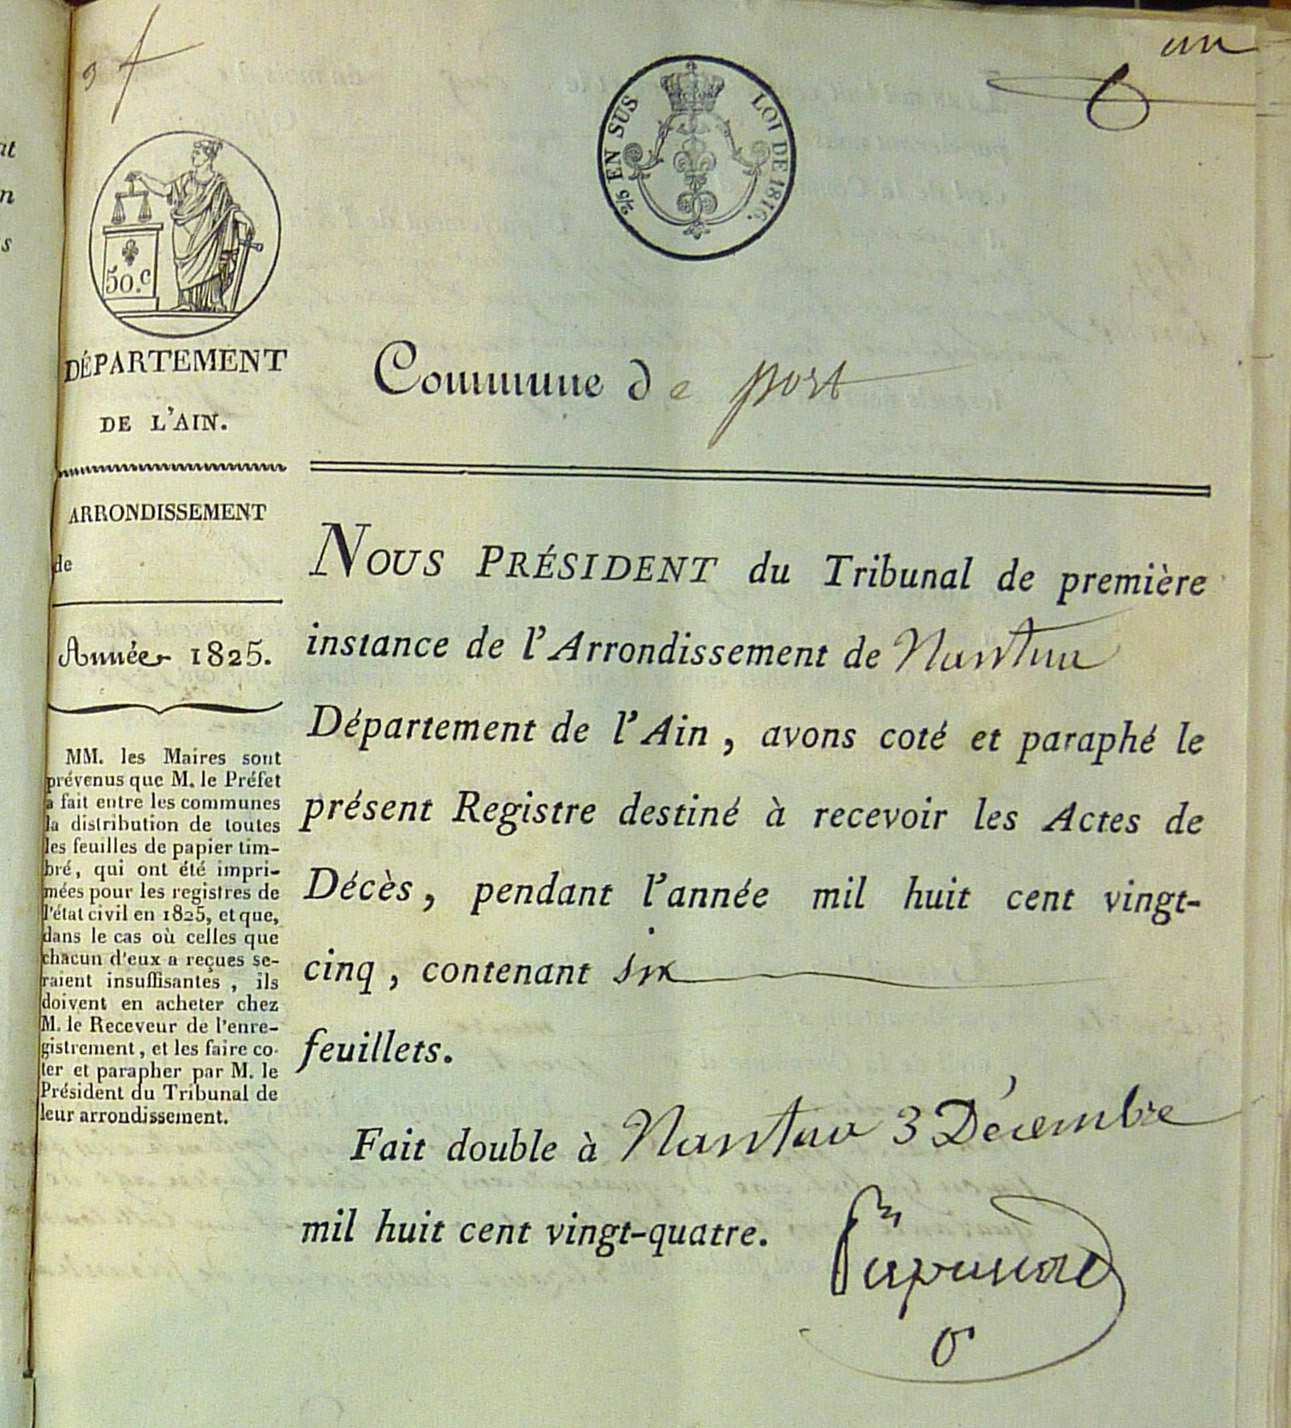 un
2/5 EN SUS LOI DE 1816.
50.c
DÉPARTEMENT
DE L'AIN.
ARRONDISSEMENT
de
Année 1825.
MM. les Maires sont
prévenus que M. le Préfet
a fait entre les communes
la distribution de toutes
les feuilles de papier tim-
bré, qui ont été impri-
mées pour les registres de
l'état civil en 1825, et que,
dans le cas où celles que
chacun d'eux a reçues se-
raient insuffisantes, ils
doivent en acheter chez
M. le Receveur de l'enre-
gistrement, et les faire co-
ter et parapher par M. le
Président du Tribunal de
leur arrondissement.
Commune de port
NOUS PRÉSIDENT du Tribunal de première
instance de l'Arrondissement de Nantua
Département de l'Ain, avons coté et paraphé le
présent Registre destiné à recevoir les Actes de
Décès, pendant l'année mil huit cent vingt-
cinq, contenant six
feuillets.
Fait double à Nantua 3 Décembre
mil huit cent vingt-quatre.